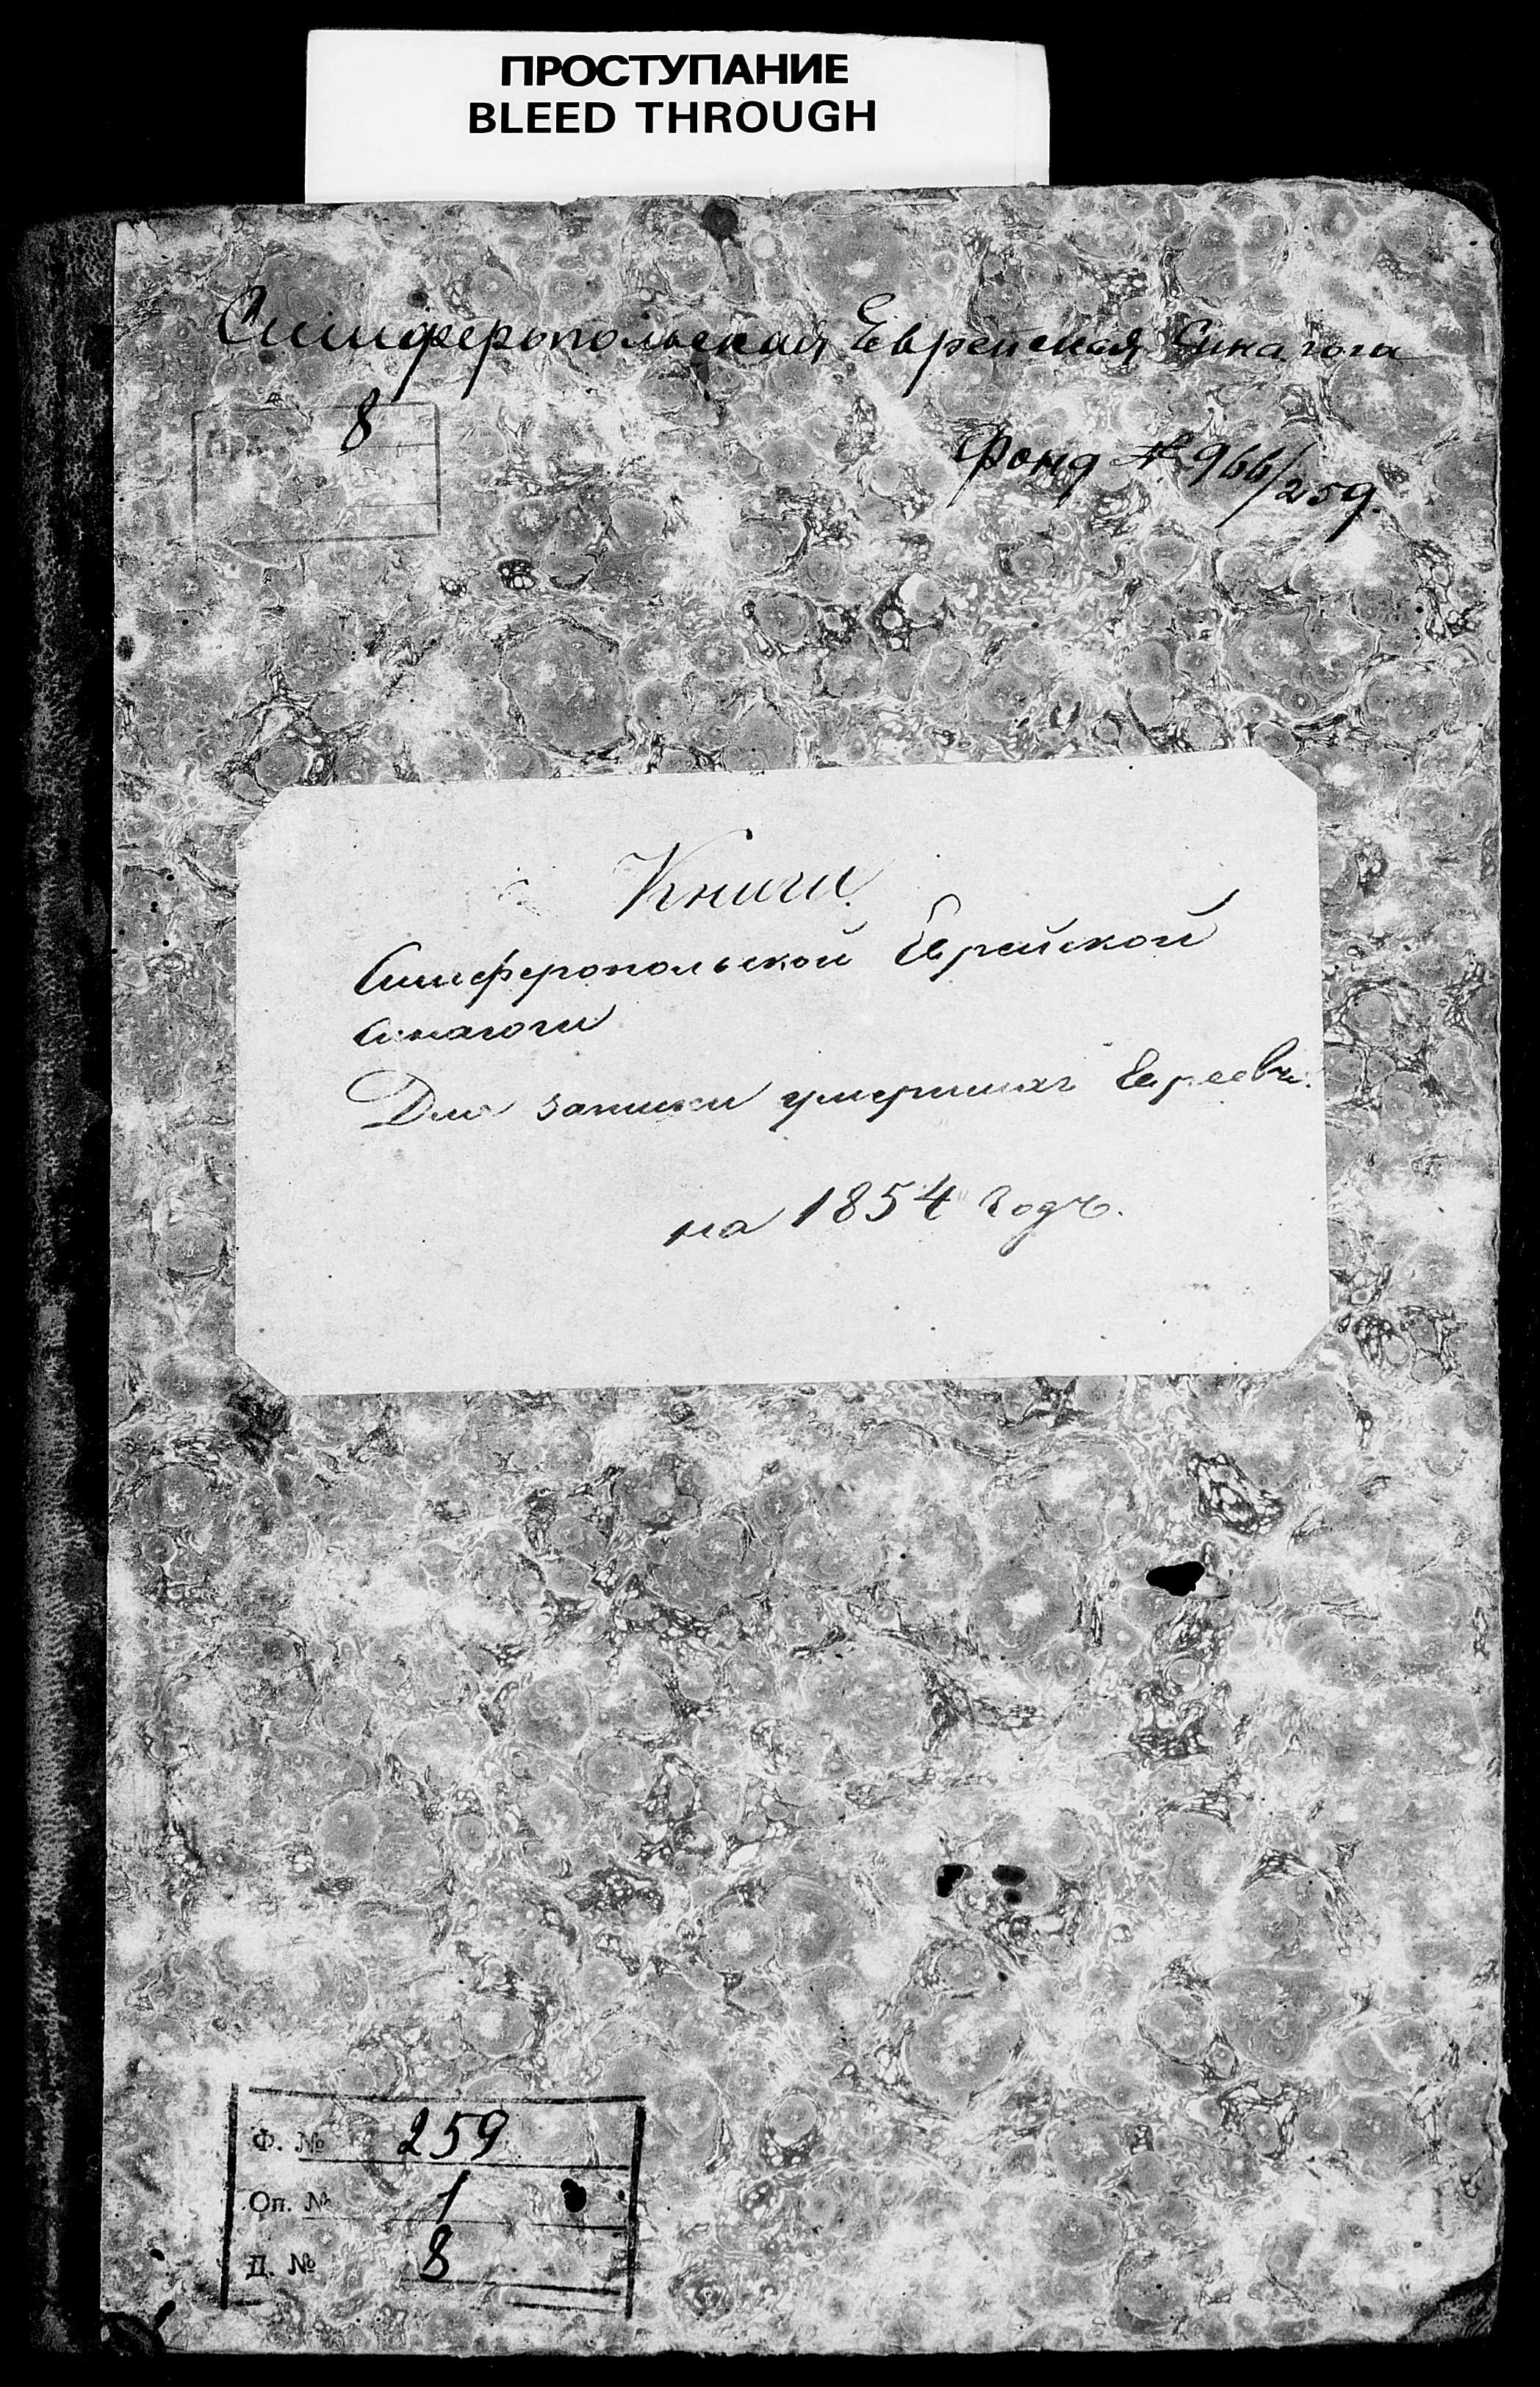 ПРОСТУПАНИЕ
BLEED THROUGH
Симферопольская Еврейская Синагога
8
Фонд № 966/259.
Книги
Симферопольской Еврейской
Синагоги
Для записки умершихъ Евреевъ.
на 1854 Годъ.
Ф. № 259
Оп. № 1
Д. № 8